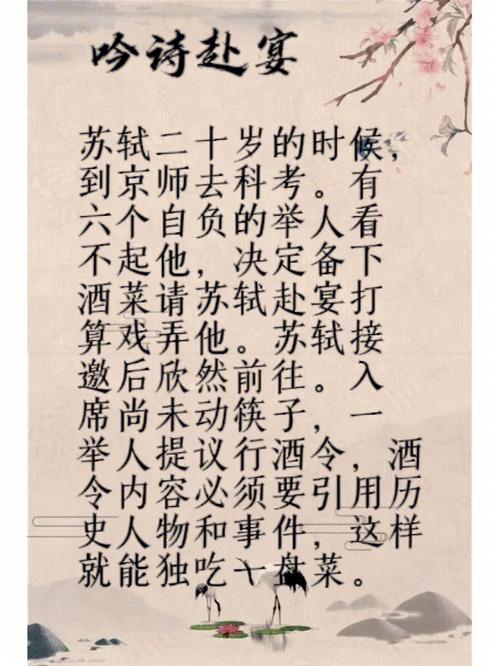 吟诗赴宴
苏轼二十岁的时候，
到京师去科考。有
六个自负的举人看
不起他，决定备下
酒菜请苏轼赴宴打
算戏弄他。苏轼接
邀后欣然前往。入
席尚未动筷子，一
举人提议行酒令，酒
令内容必须要引用历
史人物和事件，这样
就能独吃一盘菜。